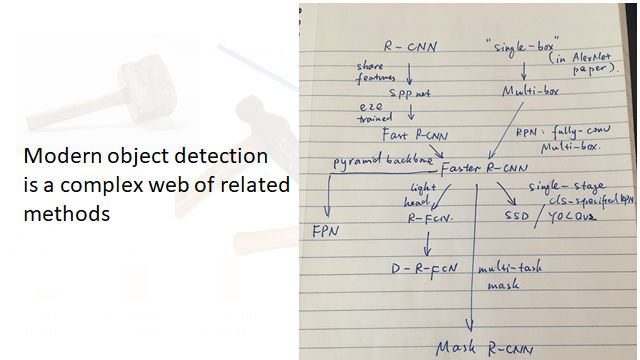 Modern object detection
is a complex web of related
methods
R-CNN
"single-box"
(in AlexNet
paper).
share
features
SPPnet
Multi-box
e2e
trained
Fast R-CNN
RPN: fully-conv
Multi-box.
pyramid backbone
Faster R-CNN
light
head
single-stage
cls-specified RPN
R-FCN.
SSD / YOLOv2
FPN
D-R-FCN
multi-task
mask
Mask R-CNN